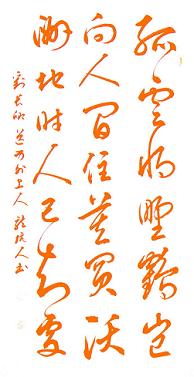 孤云将野鹤岂
向人间住莫买沃
洲地时人已知处
刘长卿送方外上人